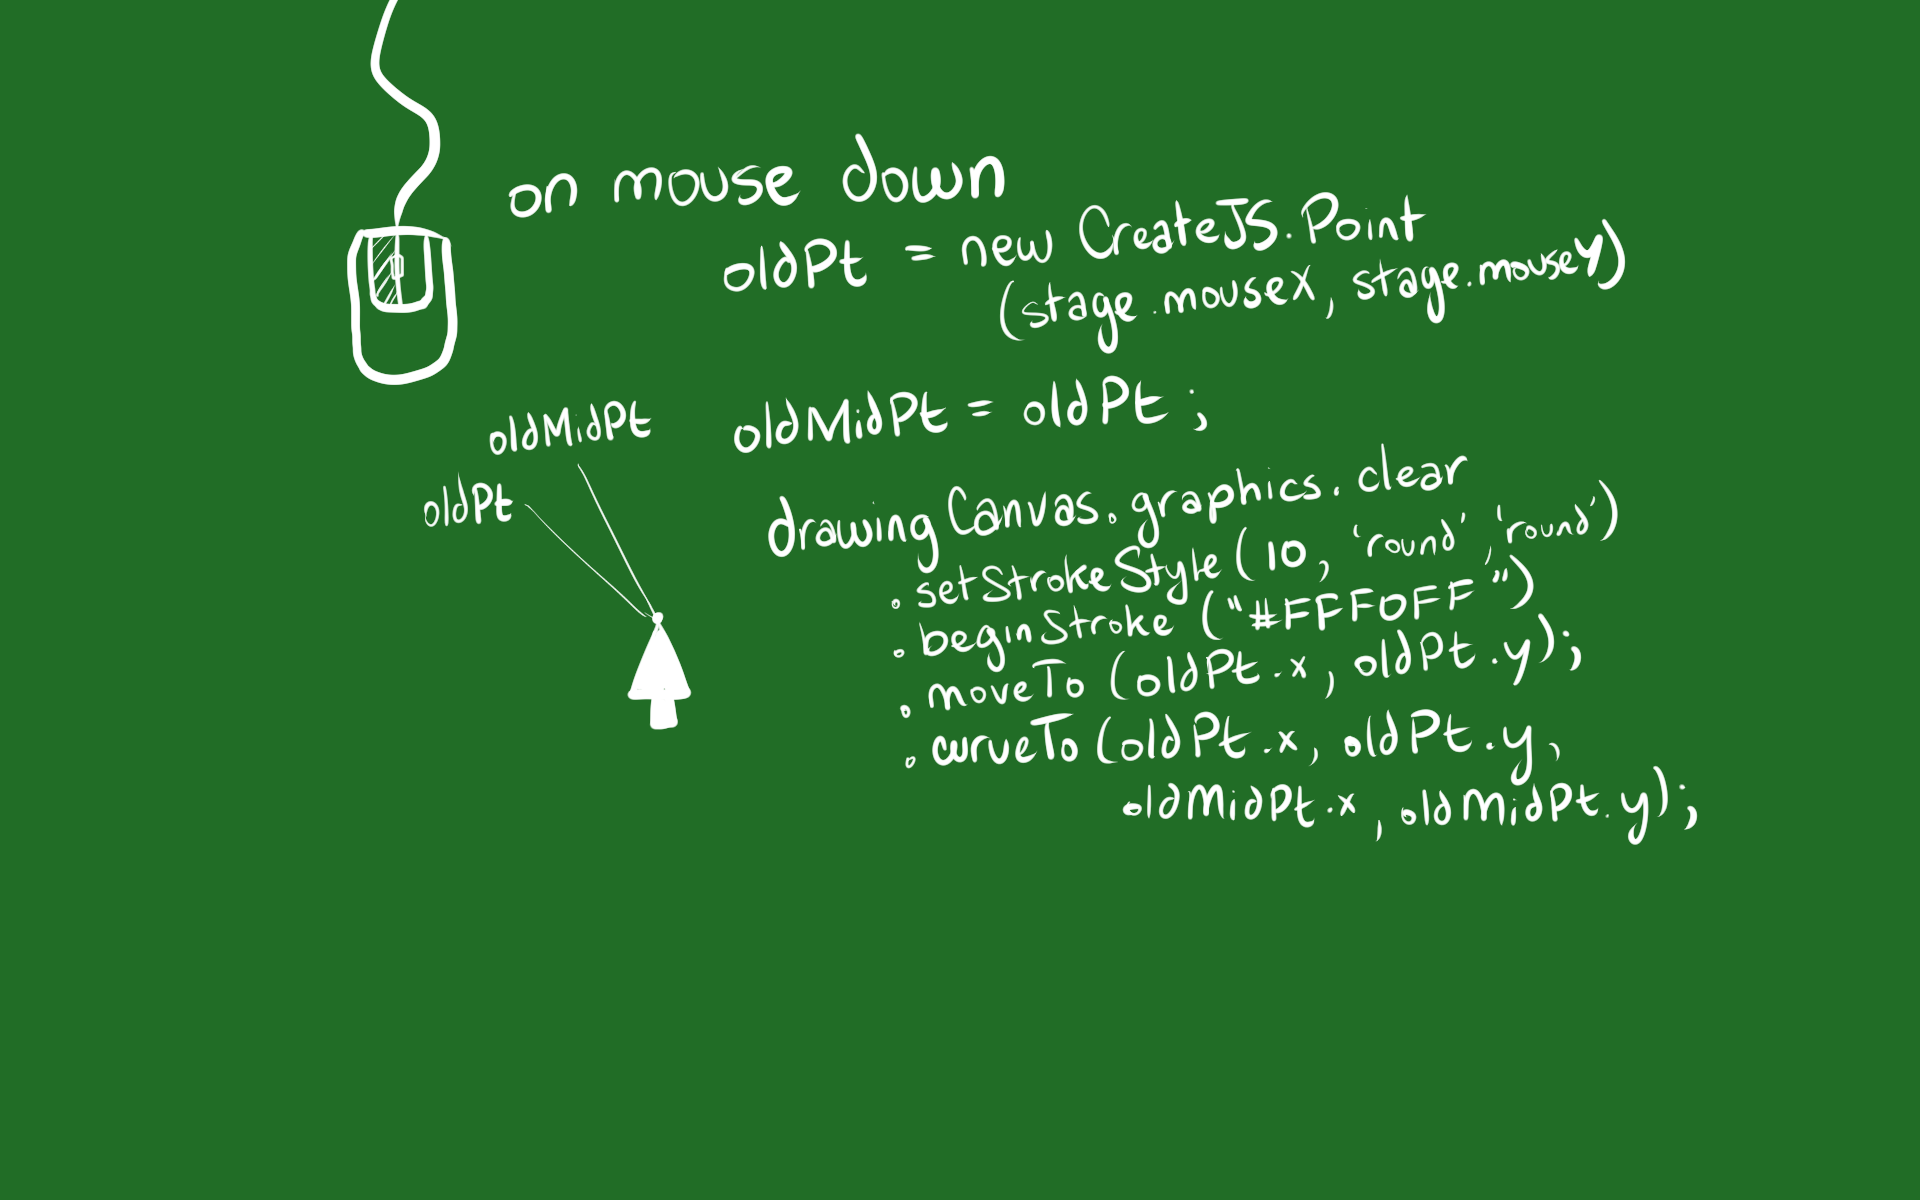 on mouse down
oldPt = new CreateJS.Point
(stage.mouseX, stage.mouseY)
oldMidPt
oldPt
oldMidPt = oldPt ;
drawing Canvas.graphics.clear
.setStrokeStyle (10, 'round', 'round')
.beginStroke ("#FFF0FF")
.moveTo (oldPt.x, oldPt.y);
.curveTo (oldPt.x, oldPt.y,
oldMidPt.x, oldMidPt.y);